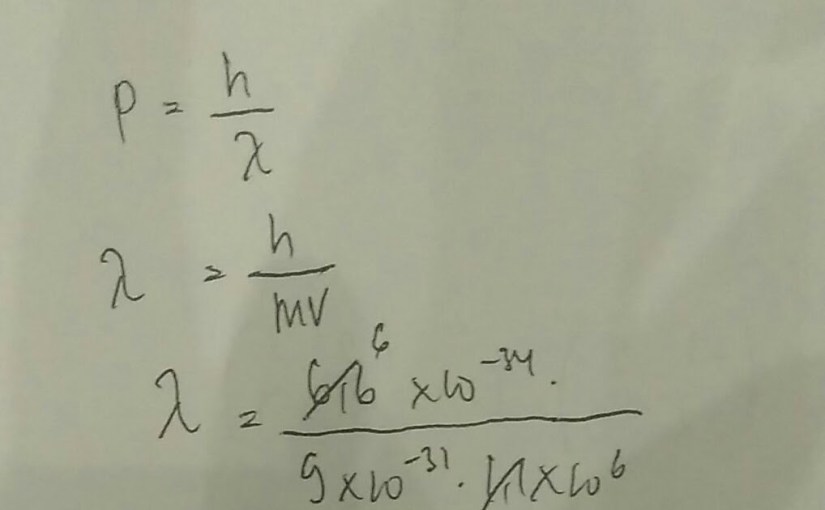 P = h/λ
λ = h/mv
λ = 6,6 6 ×10^-34. / 9×10^-31 . 1,1×10^6